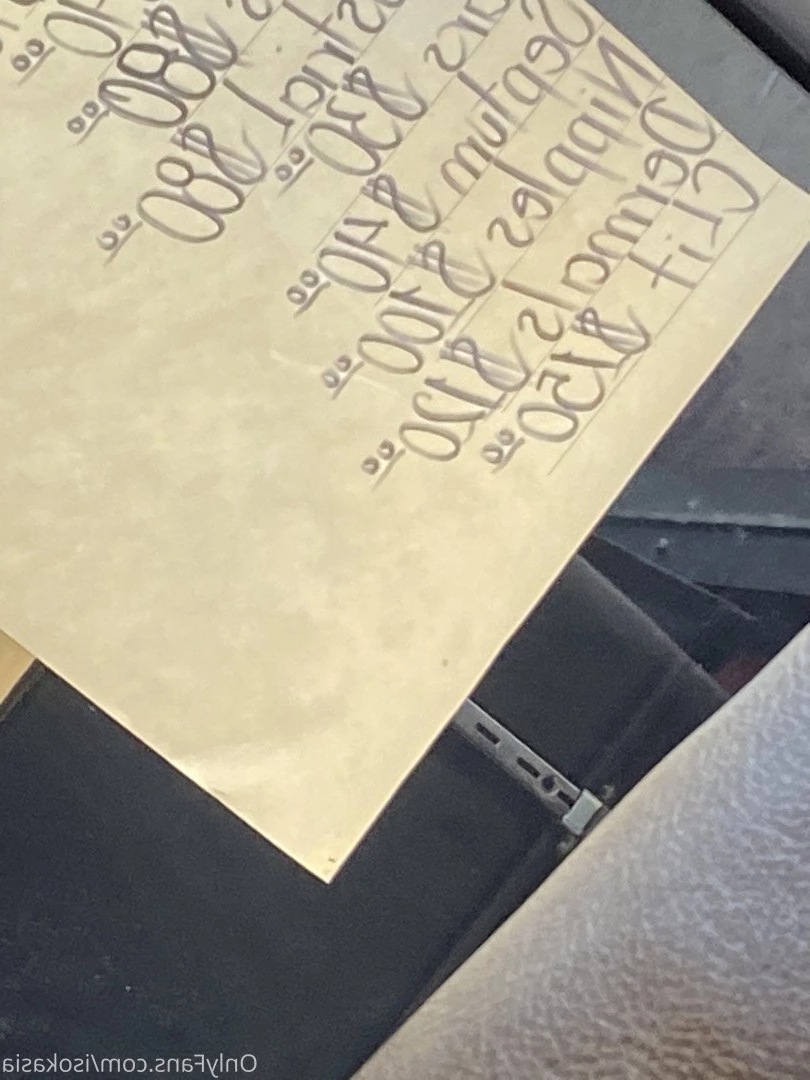 40.00
$80.00
$80.00
$30.00
Septum $40.00
Nipples $100.00
Dermals $120.00
Clit $150.00
OnlyFans.com/isokasia